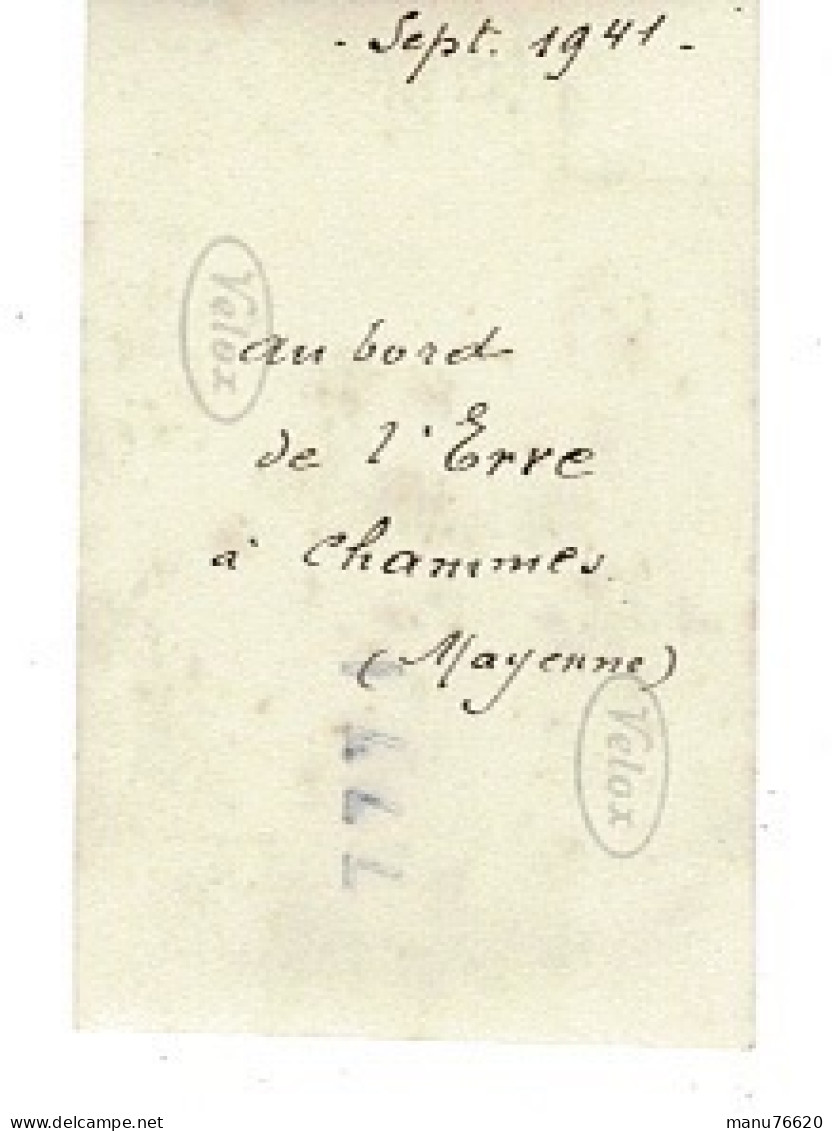 - Sept. 1941 -
Velox
au bord
de l'Erve
à Chammes
(Mayenne)
Velox
delcampe.net
manu76620